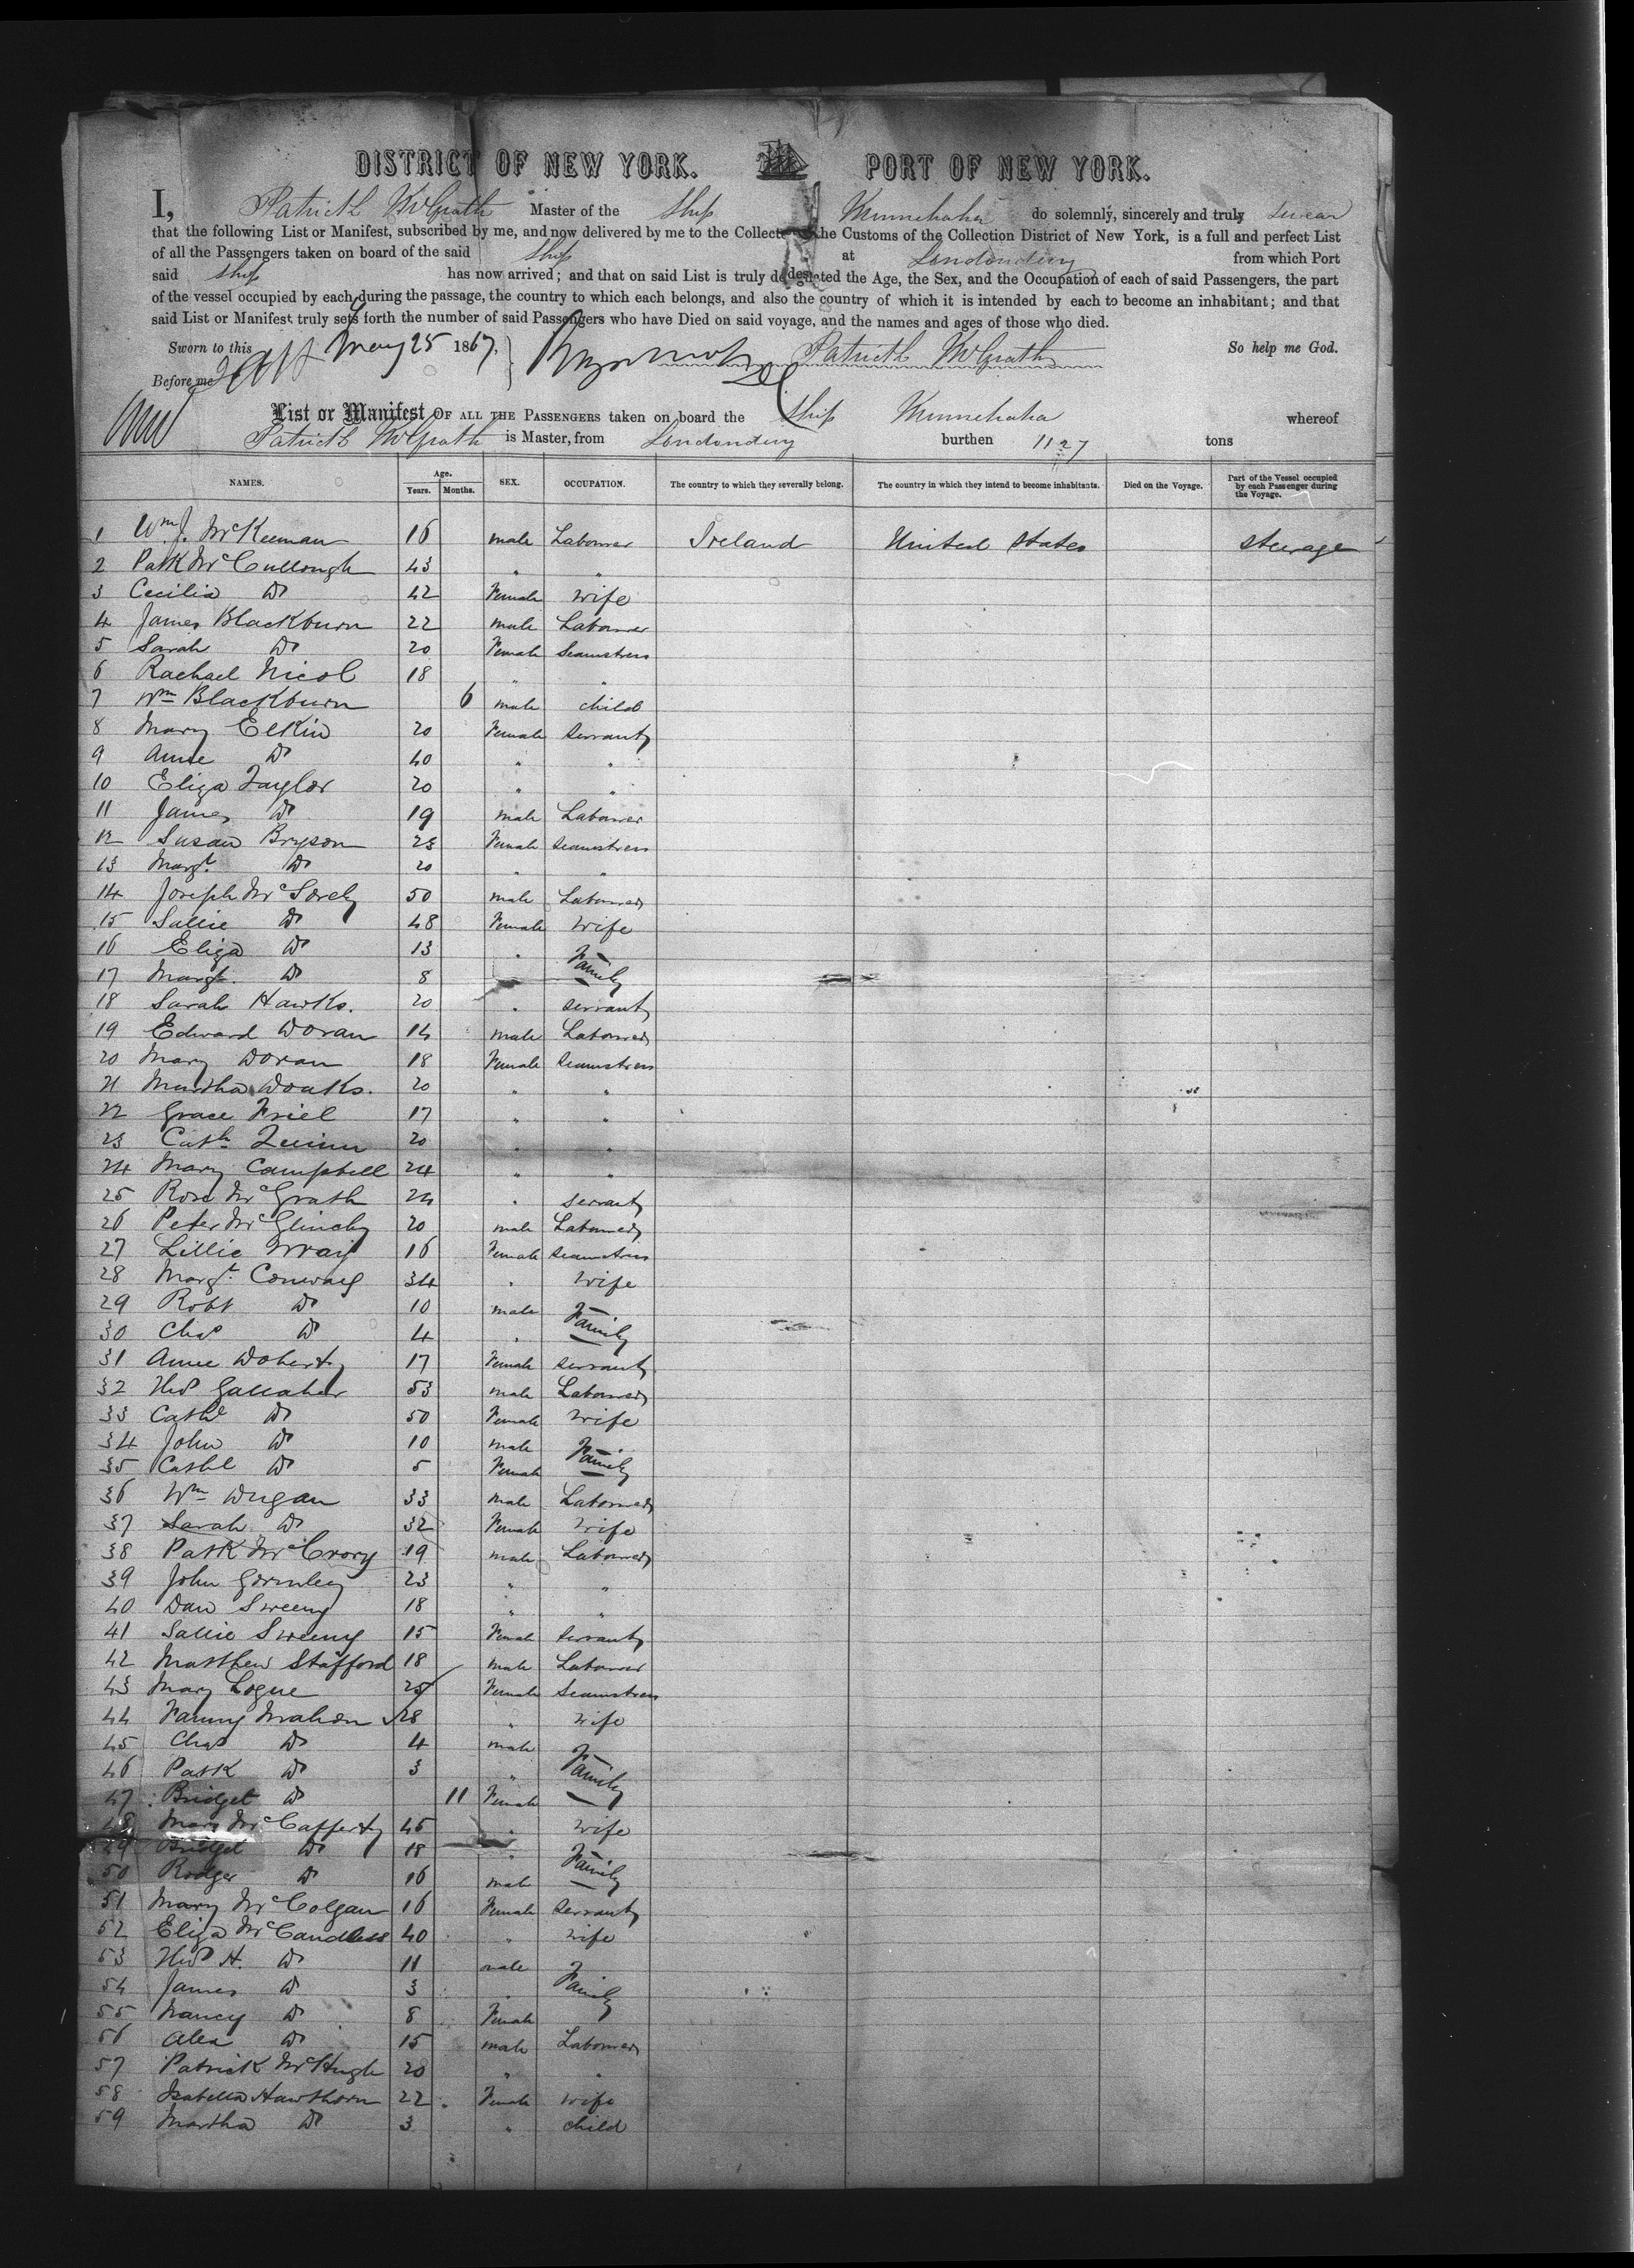 DISTRICT OF NEW YORK. PORT OF NEW YORK.
I, Patrick McGrath Master of the Ship Minnehaha do solemnly, sincerely and truly swear
that the following List or Manifest, subscribed by me, and now delivered by me to the Collector of the Customs of the Collection District of New York, is a full and perfect List
of all the Passengers taken on board of the said Ship at Londonderry from which Port
said ship has now arrived; and that on said List is truly designated the Age, the Sex, and the Occupation of each of said Passengers, the part
of the vessel occupied by each during the passage, the country to which each belongs, and also the country of which it is intended by each to become an inhabitant; and that
said List or Manifest truly sets forth the number of said Passengers who have Died on said voyage, and the names and ages of those who died.
Sworn to this May 25 1867, Patrick McGrath So help me God.
Before me
List or Manifest OF ALL THE PASSENGERS taken on board the Ship Minnehaha whereof
Patrick McGrath is Master, from Londonderry burthen 1127 tons
NAMES. Age. Years. Months. SEX. OCCUPATION. The country to which they severally belong. The country in which they intend to become inhabitants. Died on the Voyage. Part of the Vessel occupied by each Passenger during the Voyage.
1 Wm J. McKeeman 16 male Labourer Ireland United States steerage
2 Patk McCullough 43 " "
3 Cecilia Do 42 Female Wife
4 James Blackburn 22 male Labourer
5 Sarah Do 20 Female Seamstress
6 Rachael Nicol 18 " "
7 Wm Blackburn 6 male child
8 Mary Elkin 20 Female Servant
9 Anne Do 40 " "
10 Eliza Taylor 20 " "
11 James Do 19 male Labourer
12 Susan Bryson 23 Female Seamstress
13 Margt. Do 20 " "
14 Joseph McSorely 50 male Labourer
15 Sallie Do 48 Female Wife
16 Eliza Do 13 " Family
17 Margt. Do 8
18 Sarah Hawks. 20 " servant
19 Edward Doran 14 male Labourer
20 Mary Doran 18 Female Seamstress
21 Martha Doaks. 20 " "
22 Grace Friel 17 " "
23 Cath Quinn 20 " "
24 Mary Campbell 24 " "
25 Rose McGrath 24 " servant
26 Peter McGlinchy 20 male Labourer
27 Lillie Wray 16 Female Seamstress
28 Margt. Conway 34 " Wife
29 Robt Do 10 male Family
30 Chas Do 4 "
31 Anne Doherty 17 Female servant
32 Thos Gallaher 53 male Labourer
33 Cathe Do 50 Female Wife
34 John Do 10 male Family
35 Cathe Do 5 Female
36 Wm Dugan 33 male Labourer
37 Sarah Do 32 Female Wife
38 Patk McCrory 19 male Labourer
39 John Gormley 23 " "
40 Dan Sweeny 18 " "
41 Sallie Sweeny 15 Female servant
42 Matthew Stafford 18 male Labourer
43 Mary Logue 25 Female Seamstress
44 Fanny Mahon 28 " Wife
45 Chas Do 4 male Family
46 Patk Do 3 "
47 Bridget Do 11 Female
48 Mary McCafferty 45 " wife
49 Bridget Do 18 " Family
50 Rodger Do 16 male
51 Mary McColgan 16 Female Servant
52 Eliza McCandless 40 " wife
53 Thos H. Do 11 male Family
54 James Do 3 "
55 Nancy Do 8 Female
56 Alex Do 15 male Labourer
57 Patrick McHugh 20 " "
58 Isabella Hawthorn 22 Female wife
59 Martha Do 3 " child